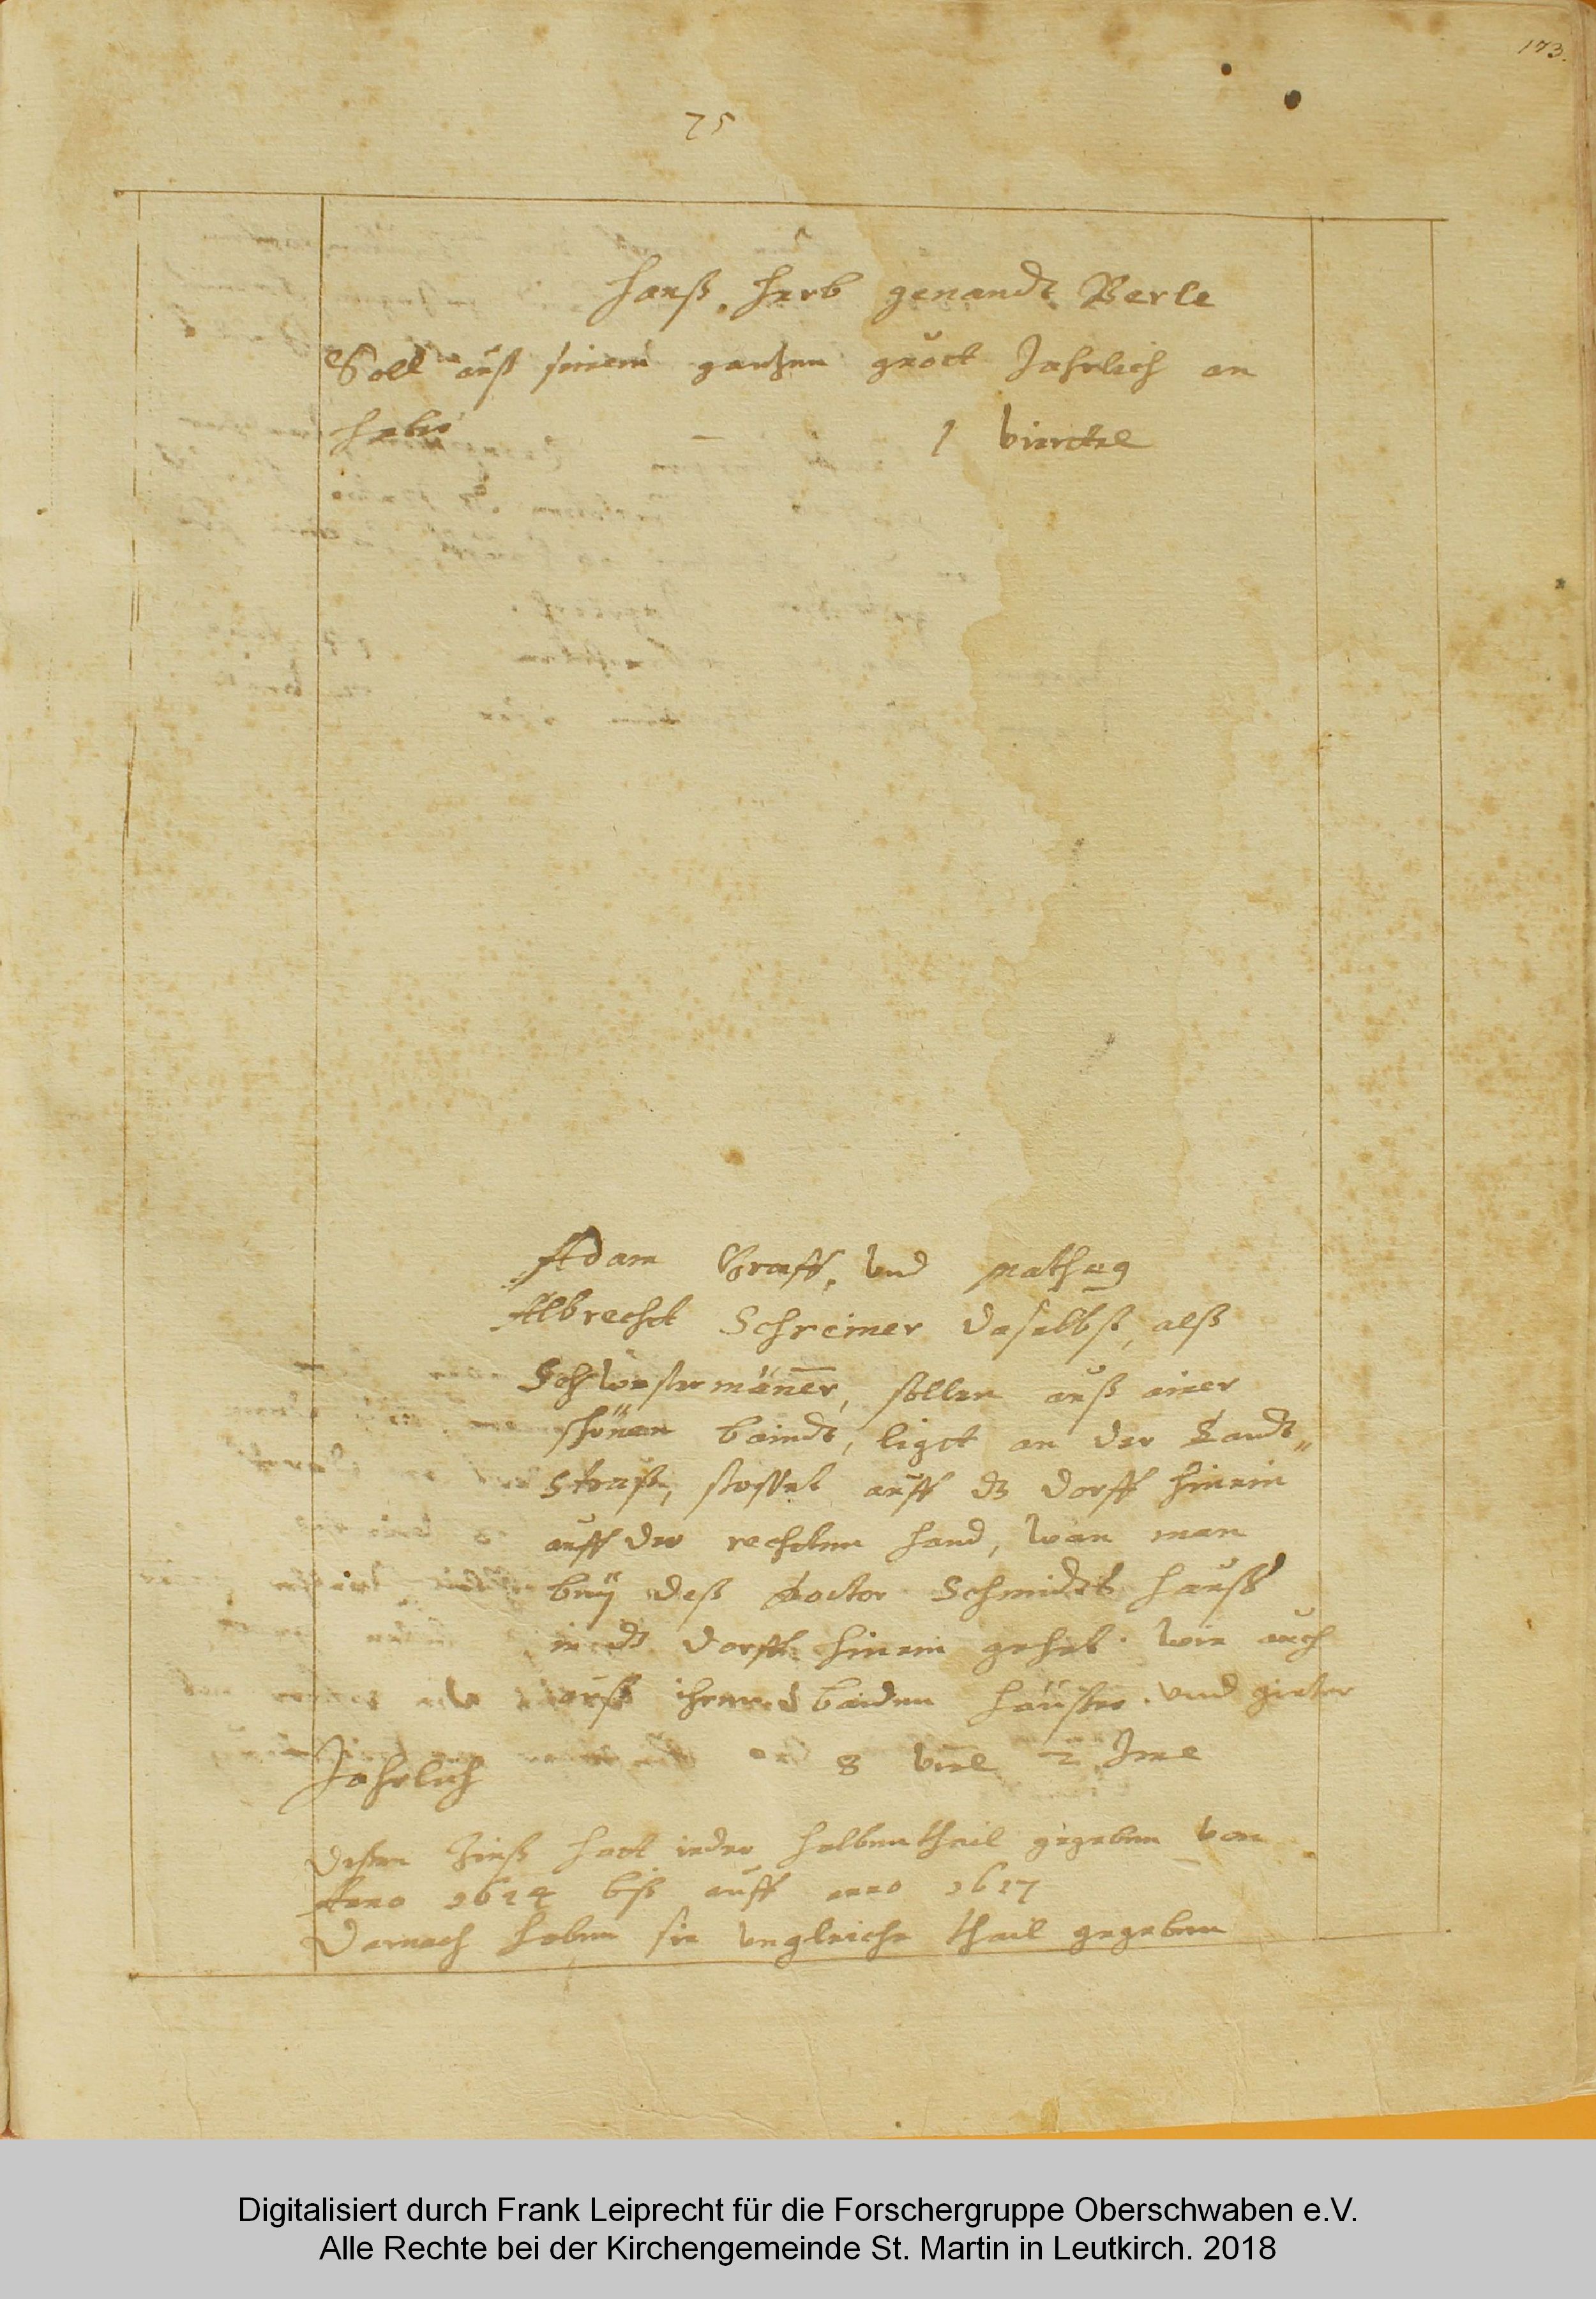 173.
75
Hanß Herb genandt Berle
Soll auß seinem gantzen guott Jahrlich an
Haber – 1 vierttel
Adam Graff, vnd Matheus
Albrecht Schreiner daselbst, alß
Schwestermäner, sollen auß einer
schönen baindt, ligt an der Landt„
Straß, stosset auff dz dorff hinein
auff der rechten hand, wan man
bey deß Doctor Schmidts hauß
in dz dorff hinein gehet. wie auch
auß ihren baiden häußer. vnd gieter
Jahrlich 8 viertl 2 Ime
disen Zinß hatt ieder halben thail gegeben von
Anno 1624 biß auff anno 1627
Darnach haben sie vngleiche thail gegeben
Digitalisiert durch Frank Leiprecht für die Forschergruppe Oberschwaben e.V.
Alle Rechte bei der Kirchengemeinde St. Martin in Leutkirch. 2018